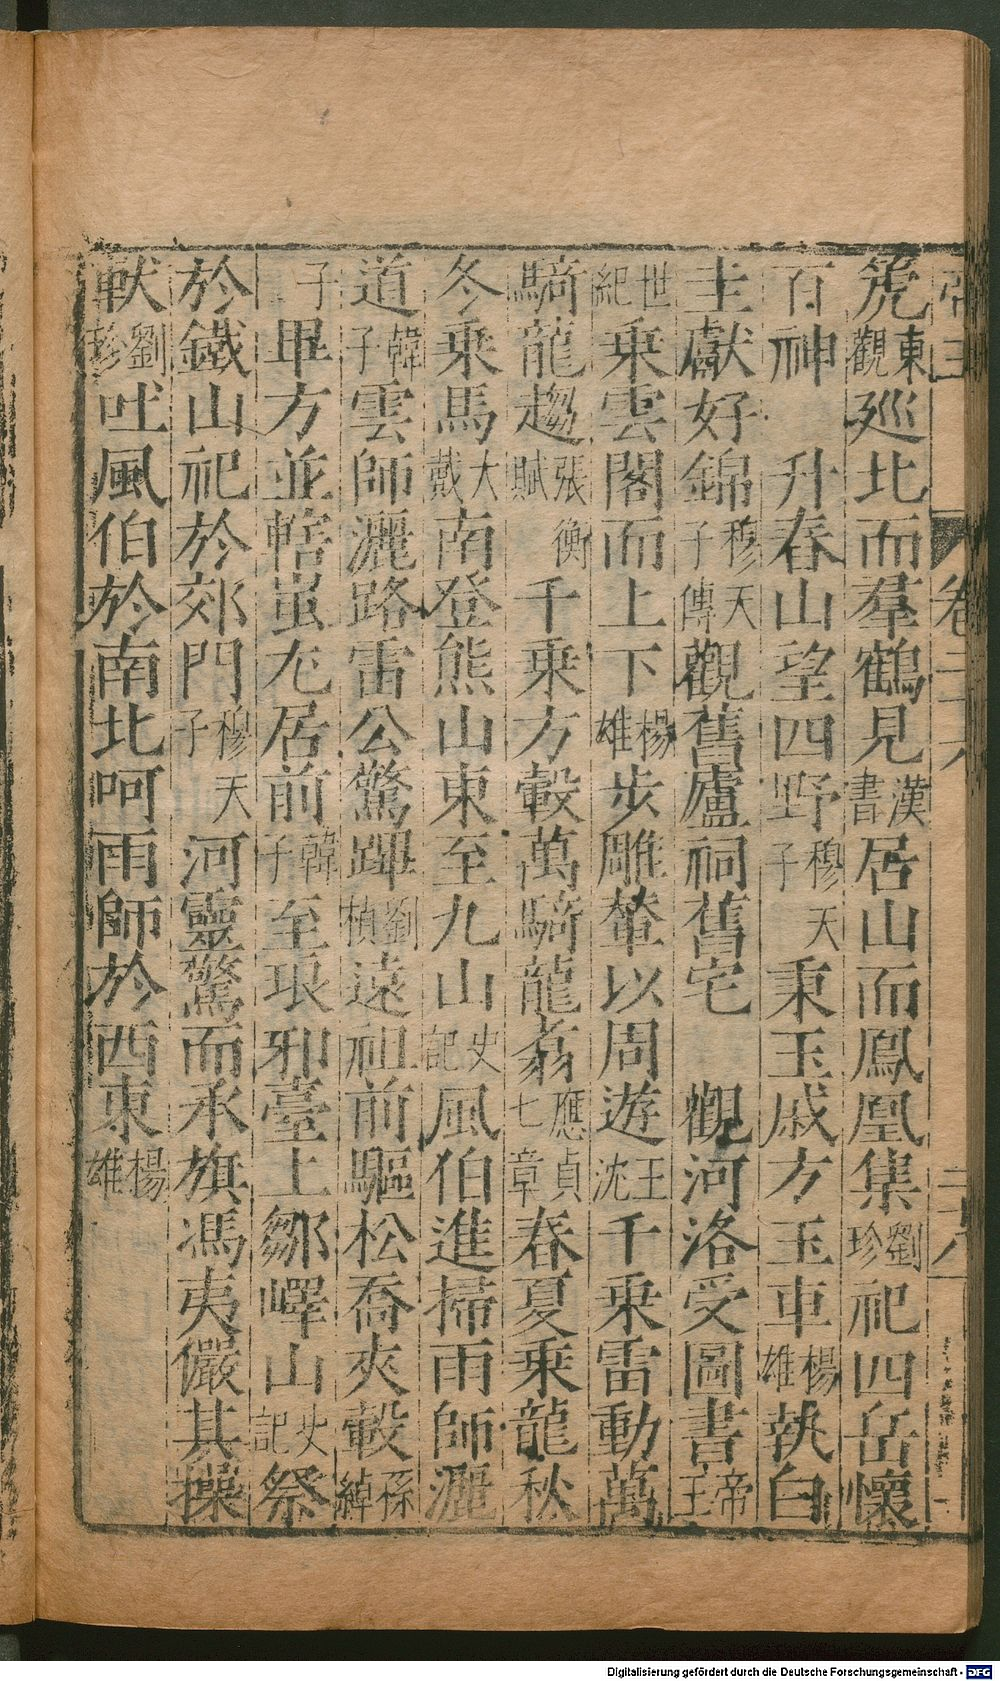 箎東觀廵北而羣鶴見漢書居山而鳳凰集劉珍祀四岳懷
百神　升春山望四野穆天子秉玉戚方玉車楊雄執白
圭獻好錦穆天子傳觀舊廬祠舊宅　觀河洛受圖書帝王
世紀乘雲閣而上下楊雄步雕輦以周遊王沈千乘雷動萬
騎龍趨張衡賦千乘方轂萬騎龍翥應貞七章春夏乘龍秋
冬乘馬大戴南登熊山東至九山史記風伯進掃雨師灑
道韓子雲師灑路雷公驚蹕劉楨遠祖前驅松喬夾轂孫綽
子畢方並轄蚩尤居前韓子至琅邪臺上鄒嶧山史記祭
於鐵山祀於郊門穆天子河靈驚而承旗馮夷儼其操
軑劉珍吐風伯於南北呵雨師於西東楊雄
卷二十六
Digitalisierung gefördert durch die Deutsche Forschungsgemeinschaft - DFG